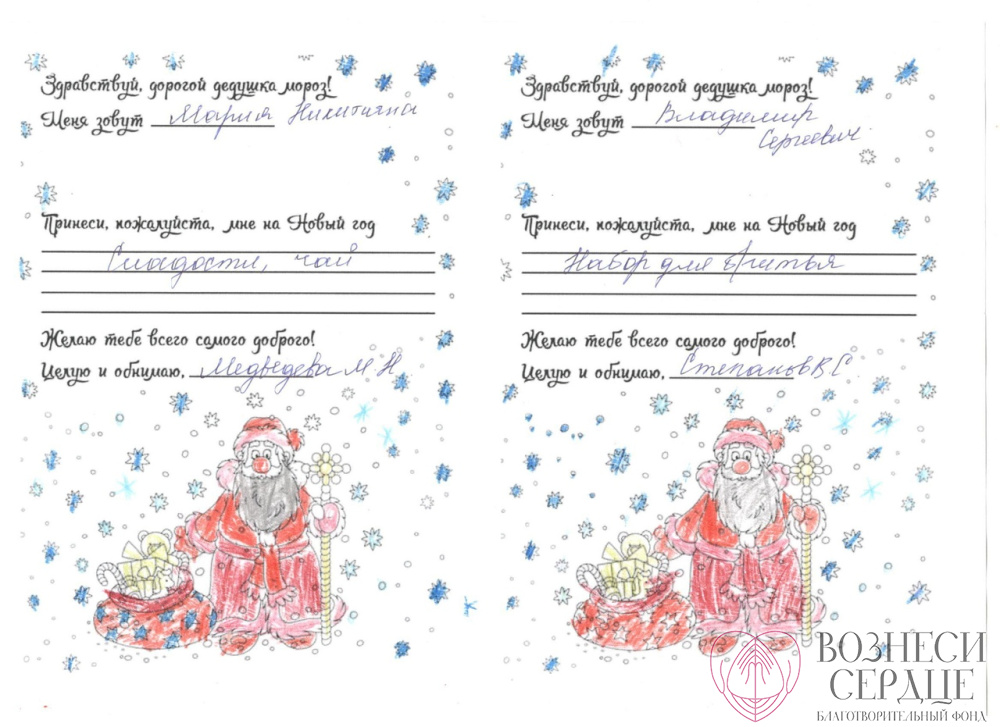 Здравствуй, дорогой дедушка мороз!
Меня зовут Мария Никитична
Принеси, пожалуйста, мне на Новый год
Сладости, чай
Желаю тебе всего самого доброго!
Целую и обнимаю, Медведева М Н
Здравствуй, дорогой дедушка мороз!
Меня зовут Владимир
Сергеевич
Принеси, пожалуйста, мне на Новый год
Набор для бритья
Желаю тебе всего самого доброго!
Целую и обнимаю, Степанов В С
ВОЗНЕСИ
СЕРДЦЕ
БЛАГОТВОРИТЕЛЬНЫЙ ФОНД